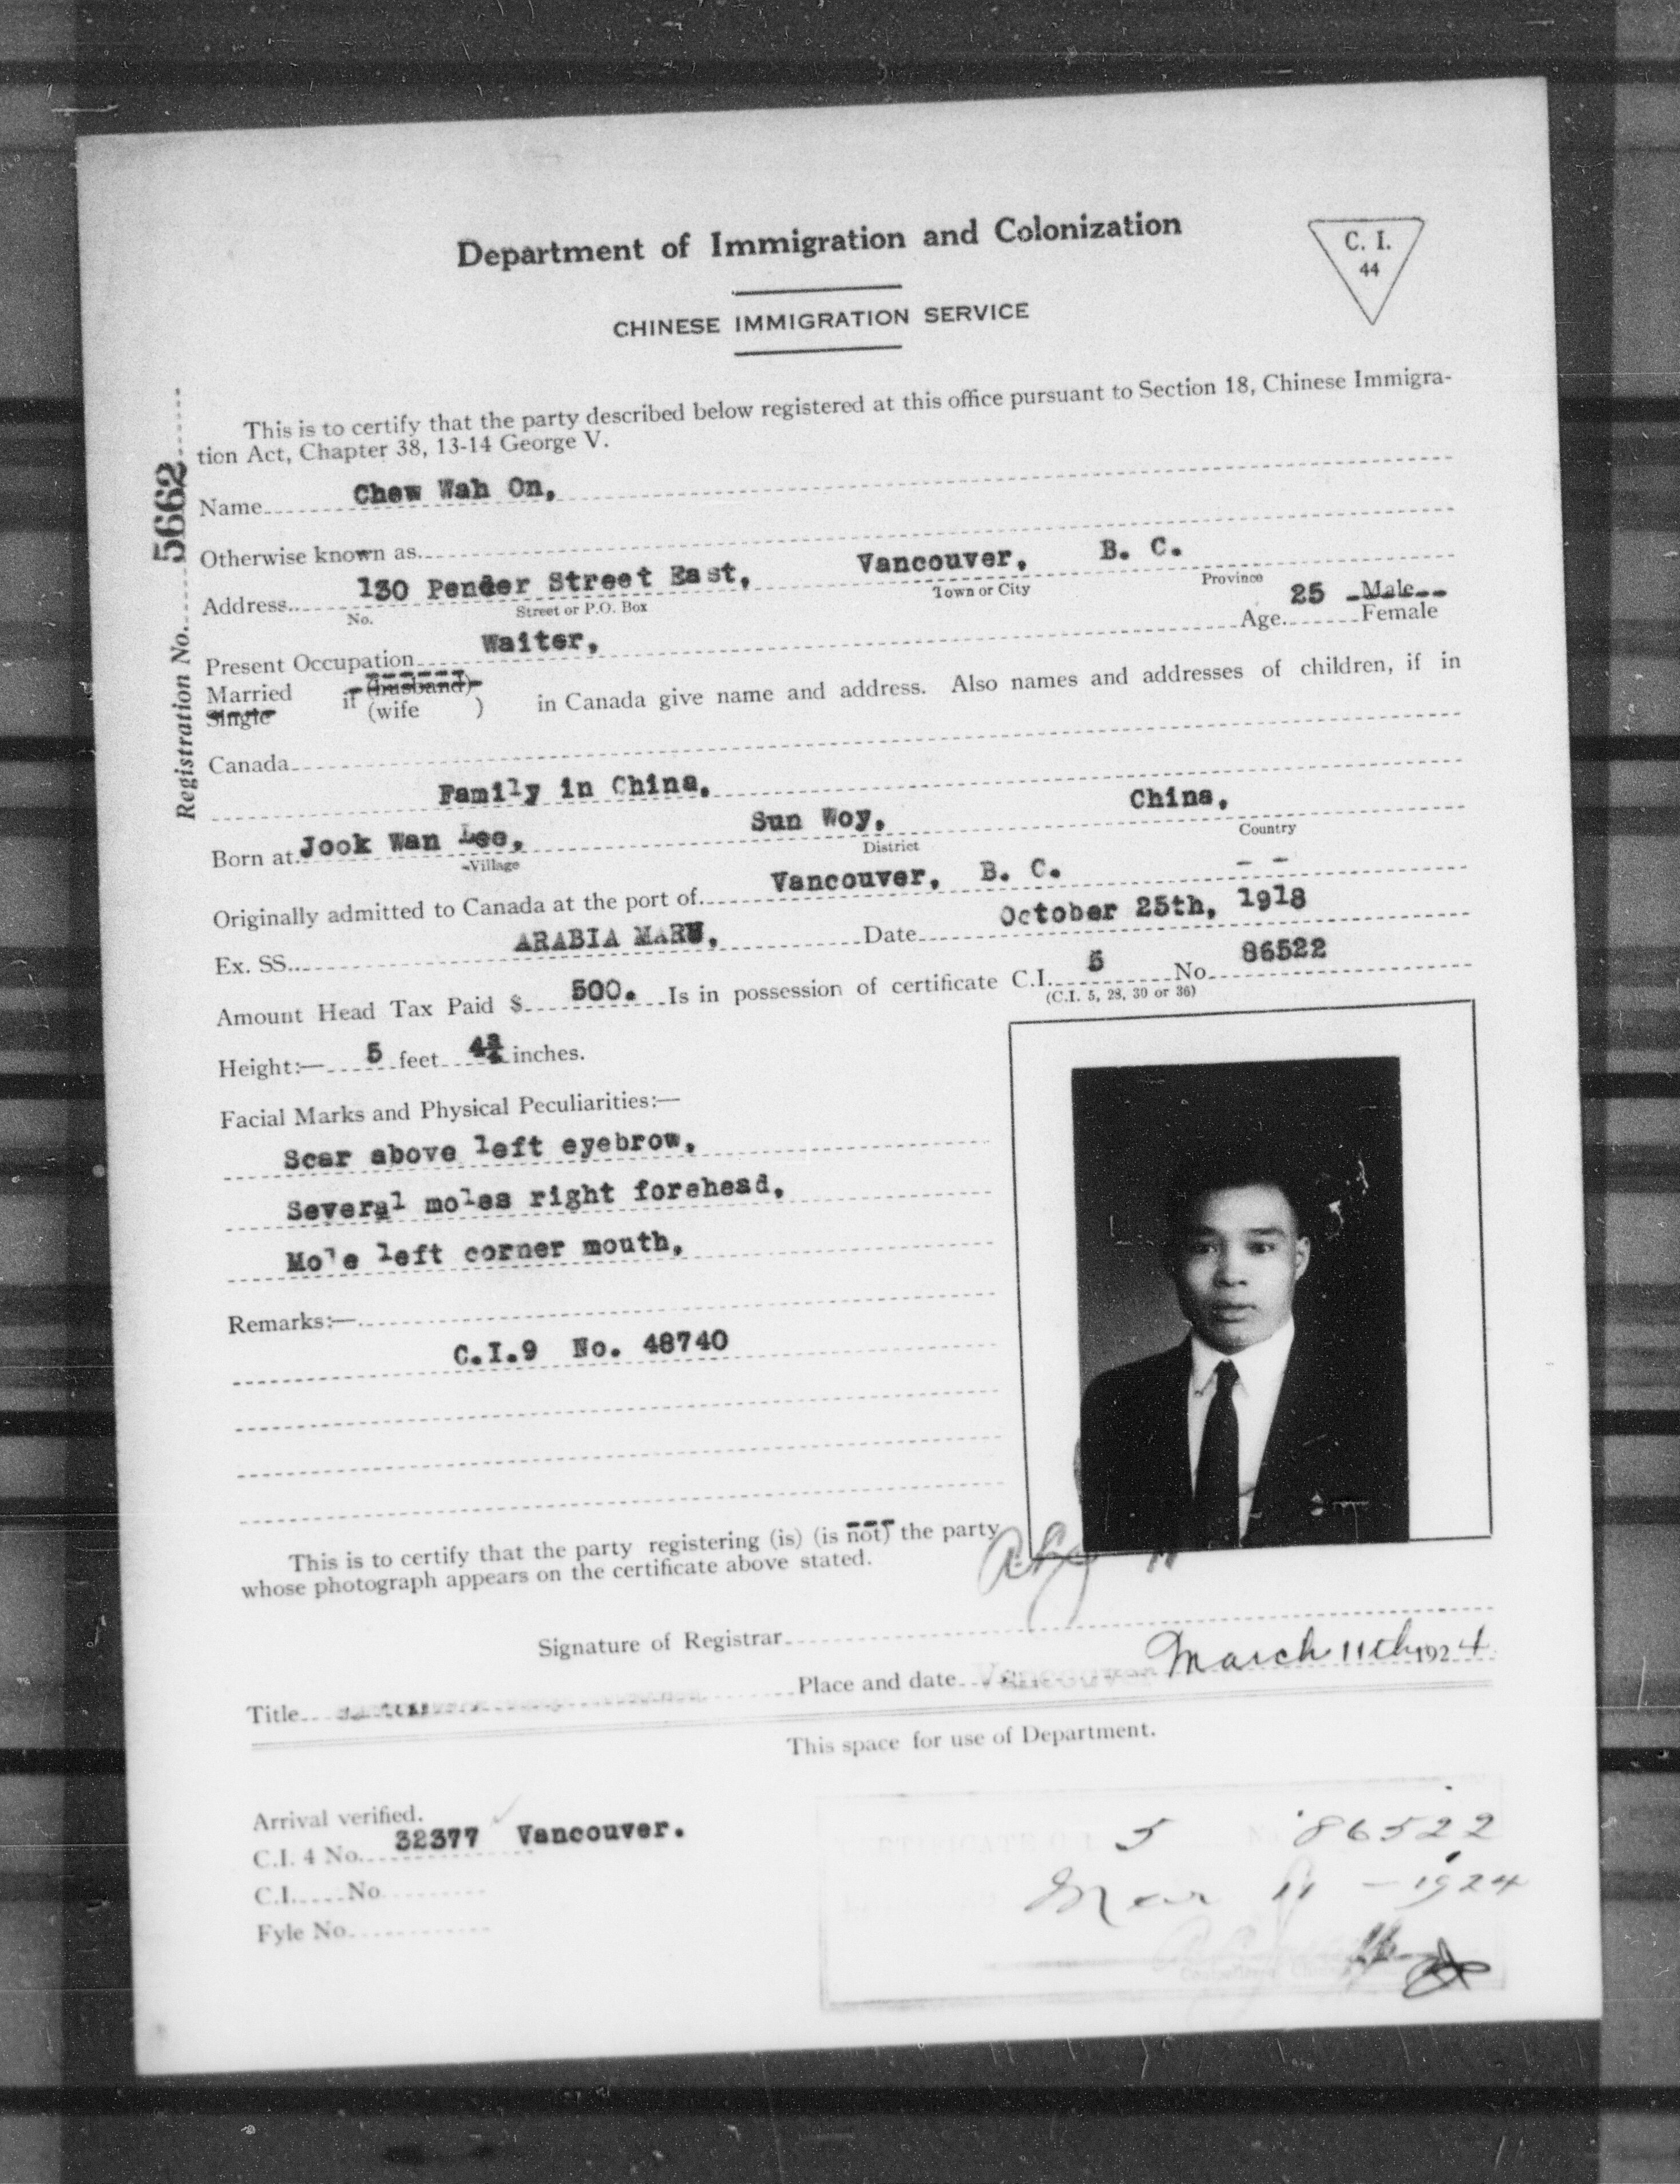 Department of Immigration and Colonization
C. I.
44
CHINESE IMMIGRATION SERVICE
Registration No. 5662
This is to certify that the party described below registered at this office pursuant to Section 18, Chinese Immigra-
tion Act, Chapter 38, 13-14 George V.
Name Chew Wah On,
Otherwise known as
Address 130 Pender Street East, Vancouver, B. C.
No. Street or P.O. Box Town or City Province
Age 25 Male
Female
Present Occupation Waiter,
Married if (husband) in Canada give name and address. Also names and addresses of children, if in
Single (wife )
Canada
Family in China,
Born at Jook Wan Lee, Sun Woy, China,
Village District Country
Originally admitted to Canada at the port of Vancouver, B. C. - -
Ex. SS. ARABIA MARU, Date October 25th, 1918
Amount Head Tax Paid $ 500. Is in possession of certificate C.I. 5 No. 86522
(C.I. 5, 28, 30 or 36)
Height:— 5 feet 4¾ inches.
Facial Marks and Physical Peculiarities:—
Scar above left eyebrow,
Several moles right forehead,
Mole left corner mouth,
Remarks:—
C.I.9 No. 48740
This is to certify that the party registering (is) (is not) the party
whose photograph appears on the certificate above stated.
Signature of Registrar
Place and date Vancouver March 11th 1924
Title
This space for use of Department.
Arrival verified.
C.I. 4 No. 32377 Vancouver.
C.I. No.
Fyle No.
5 86522
Mar 11 - 1924